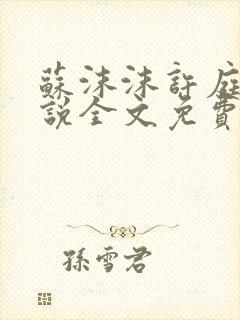 蘇沫沫許庭
說全文免費
孫雪君